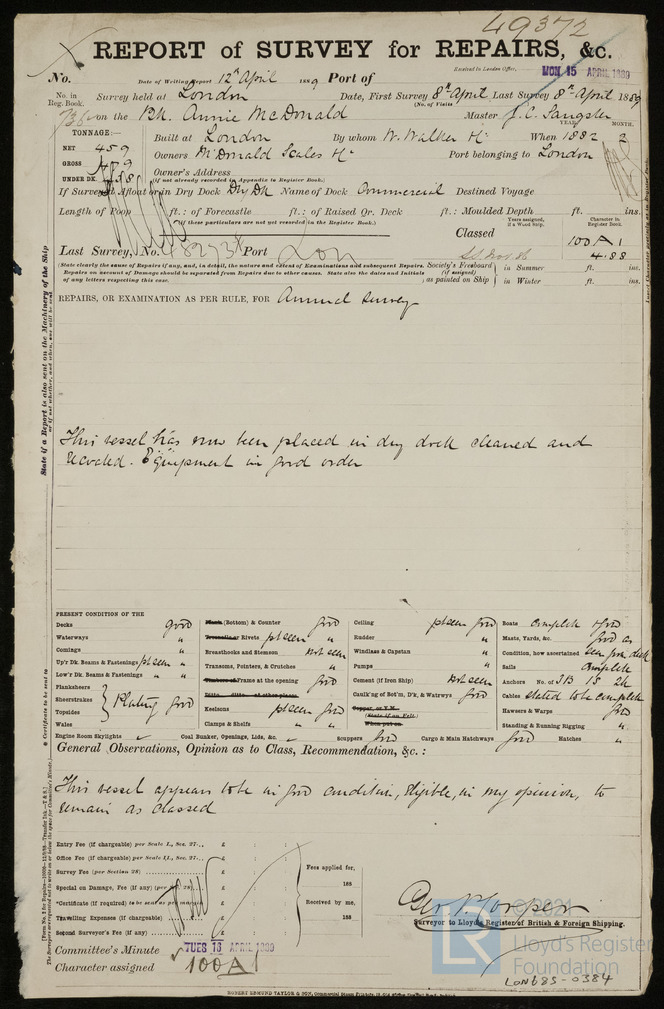 49372
REPORT of SURVEY for REPAIRS, &c.
No. Date of Writing Report 12th April 1889 Port of Received in London Office, MON 15 APRIL 1889
No. in Reg. Book. Survey held at London Date, First Survey 8th April Last Survey 8th April 1889
(No. of Visits
on the Bk. Annie McDonald Master J. C. Sangster
TONNAGE:— YEAR. MONTH.
NET 459 Built at London By whom W. Walker When 1882 2
GROSS Owners McDonald Scales Port belonging to London
UNDER DK. Owner's Address
(if not already recorded in Appendix to Register Book.)
If Surveyed Afloat or in Dry Dock Dry Dk Name of Dock Commercial Destined Voyage
Length of Poop ft.: of Forecastle ft.: of Raised Qr. Deck ft.: Moulded Depth ft. ins.
(if these particulars are not yet recorded in the Register Book.)
Years assigned, if a Wood Ship. Character in Register Book.
Classed 100 A 1
Last Survey, No. Port Lon 4.88
(State clearly the cause of Repairs if any, and, in detail, the nature and extent of Examinations and subsequent Repairs.
Repairs on account of Damage should be separated from Repairs due to other causes. State also the dates and Initials
of any letters respecting this case.
Society's Freeboard (if assigned) as painted on Ship in Summer ft. ins.
in Winter ft. ins.
REPAIRS, OR EXAMINATION AS PER RULE, FOR Annual Survey
State if a Report is also sent on the Machinery of the Ship
This vessel has now been placed in dry dock cleaned and
recoated. Equipment in good order
PRESENT CONDITION OF THE
Decks good
Waterways "
Comings "
Up'r Dk. Beams & Fastenings pt seen "
Low'r Dk. Beams & Fastenings " "
Planksheers
Sheerstrakes
Topsides
Wales
Plating good
Engine Room Skylights
Plank (Bottom) & Counter good
Treenails or Rivets pt seen "
Breasthooks and Stemson not seen
Transoms, Pointers, & Crutches "
Timbers of Frame at the opening good
Ditto ditto at other places
Keelsons pt seen good
Clamps & Shelfs " "
Coal Bunker, Openings, Lids, &c.
Ceiling pt seen good
Rudder "
Windlass & Capstan "
Pumps "
Cement (if Iron Ship) Not seen
Caulk'ng of Bot'm, D'k, & Watrwys good
Copper, or Y.M.
(State if on Felt.)
When put on
Scuppers good Cargo & Main Hatchways good Hatches "
Boats Complete & good
Masts, Yards, &c. good as
Condition, how ascertained seen from deck
Sails Complete
Anchors No. of 3B 1S 2K
Cables stated to be complete
Hawsers & Warps good
Standing & Running Rigging "
General Observations, Opinion as to Class, Recommendation, &c. :
This vessel appears to be in good condition, eligible, in my opinion, to
remain as classed
Entry Fee (if chargeable) per Scale I., Sec. 27. £ : :
Office Fee (if chargeable) per Scale II., Sec. 27. £
Survey Fee (per Section 28) £
Special on Damage, Fee (if any) (per Sec. 28) £
*Certificate (if required) £
Travelling Expenses (if chargeable) £
Second Surveyor's Fee (if any) £
Fees applied for,
188
Received by me,
188
Geo. P. Cooper
Surveyor to Lloyd's Register of British & Foreign Shipping.
Committee's Minute TUES 16 APRIL 1889
Character assigned 100 A 1
© 2021
Lloyd's Register
Foundation
LON685-0384